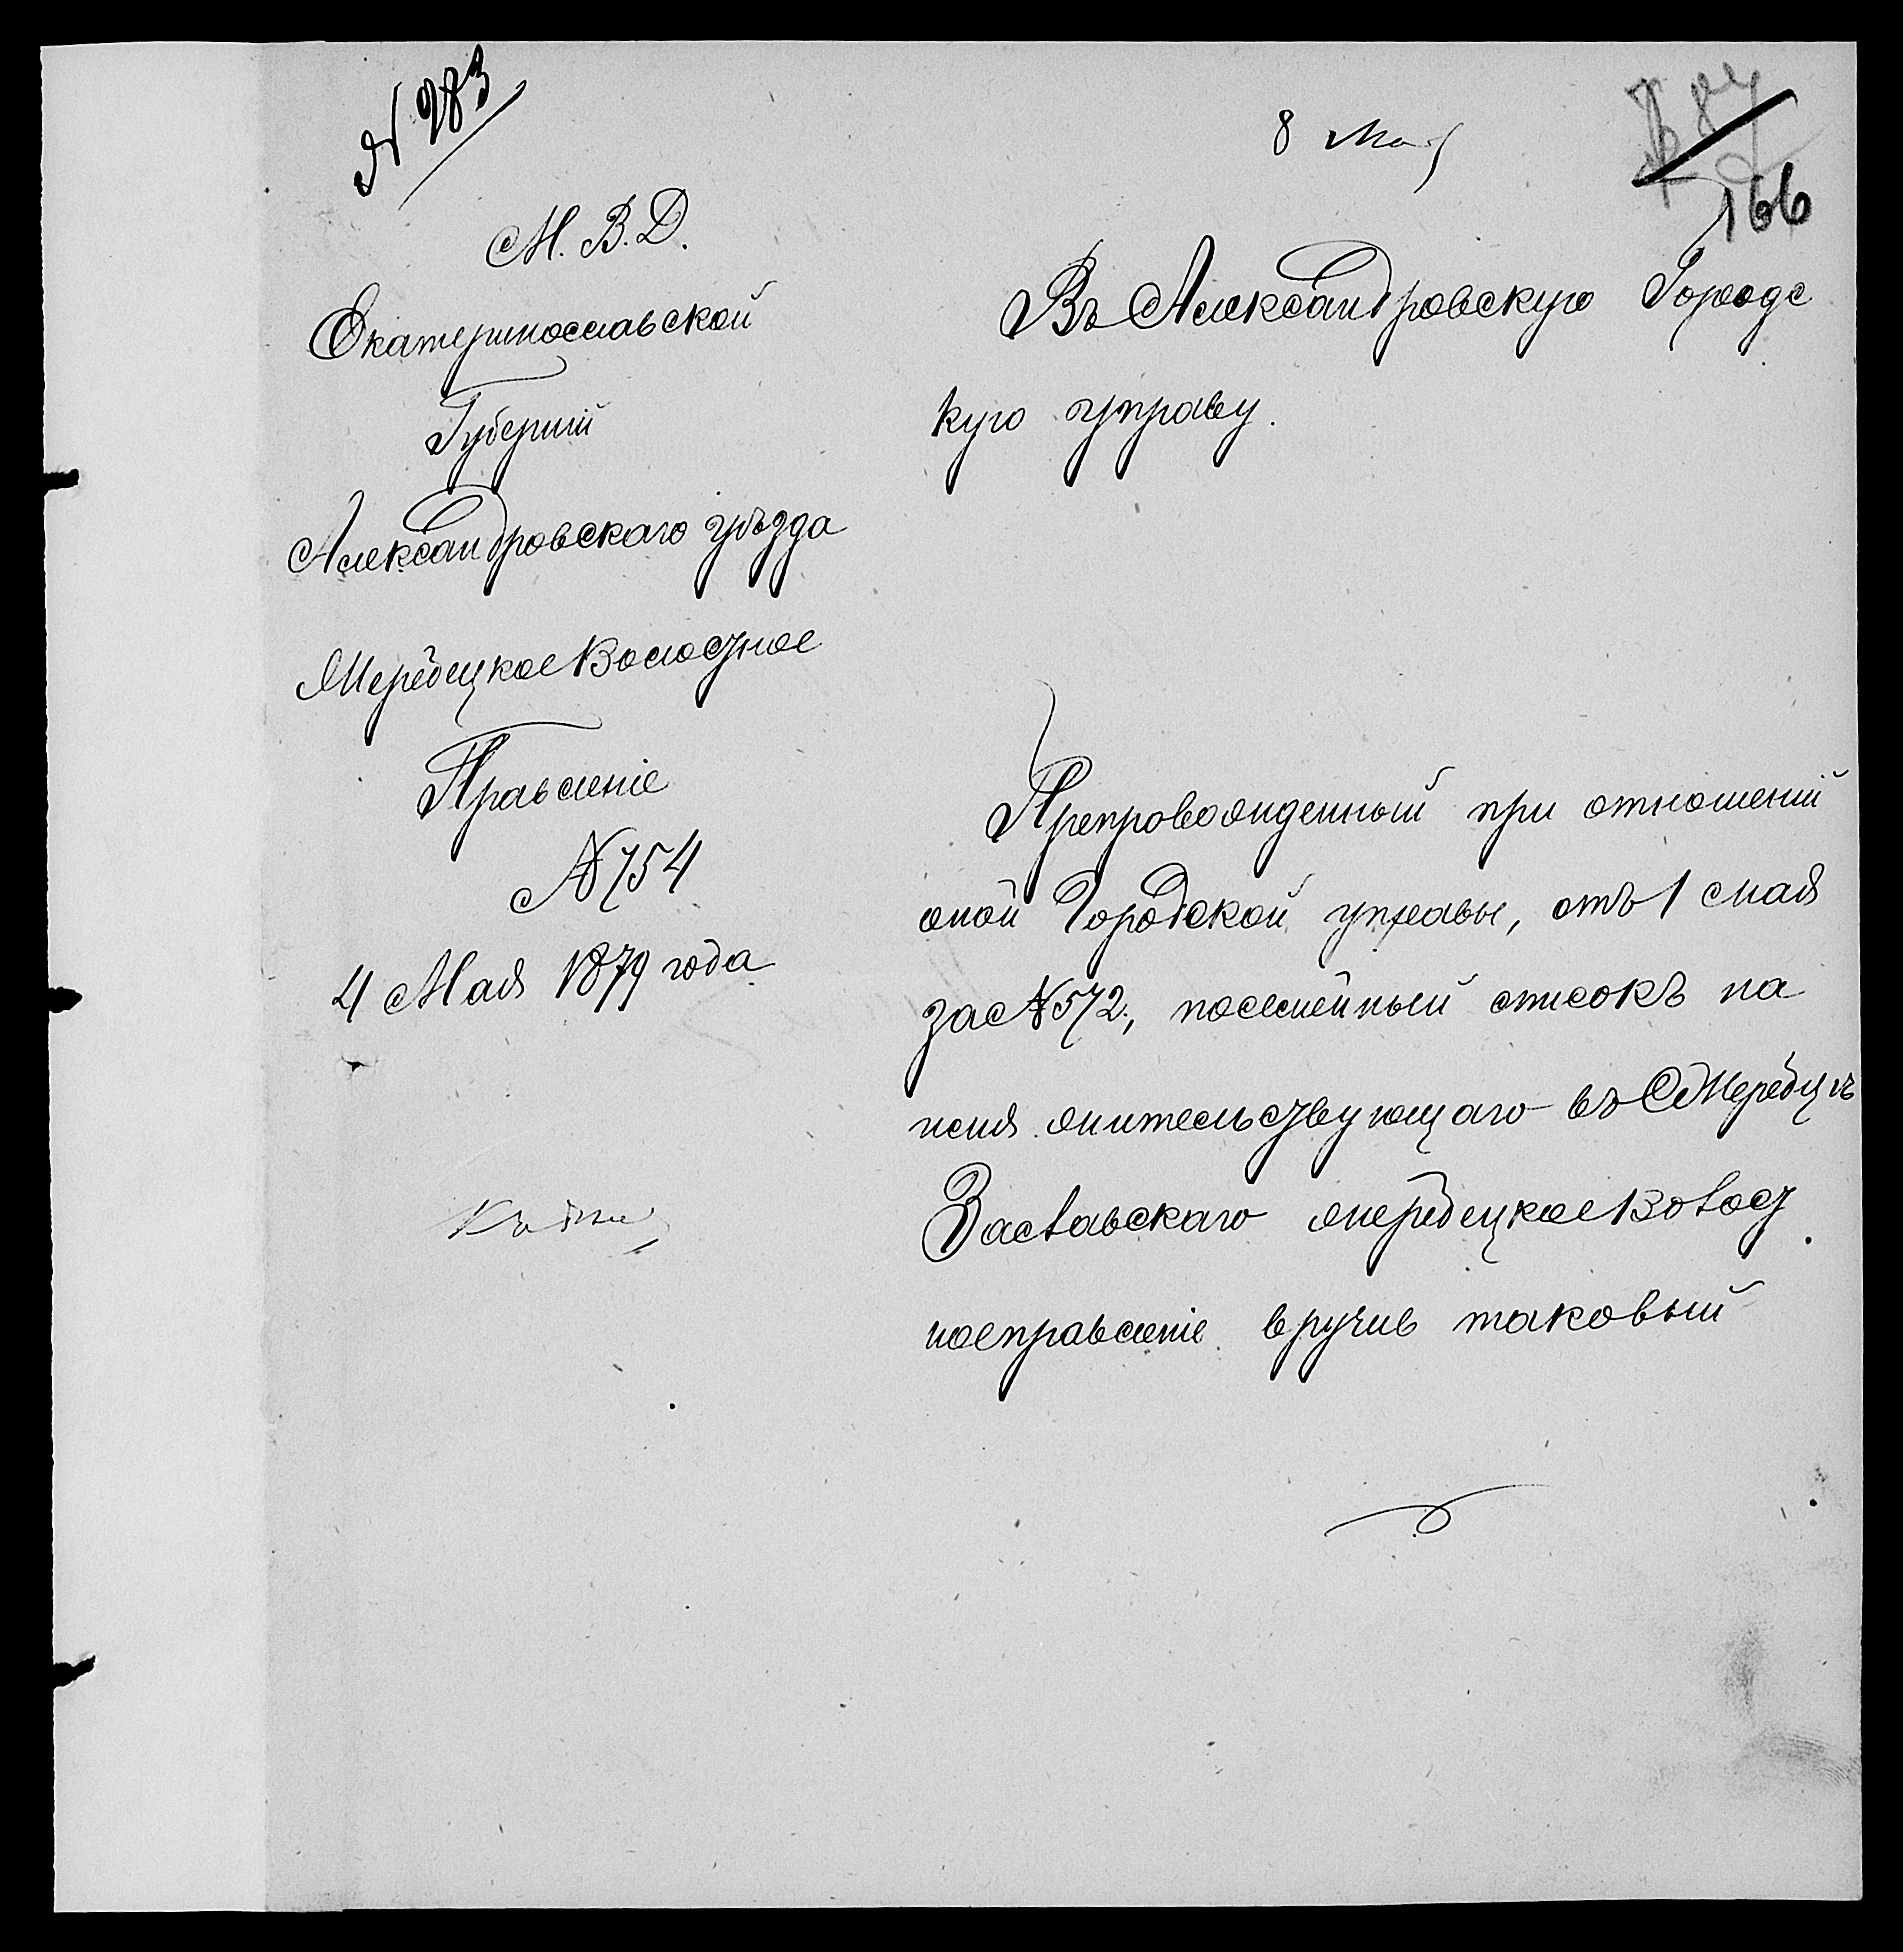 N 283
8 Мая
166
М. В. Д.
Екатеринославской
Губерніи
Александровскаго уѣзда
Жеребецкое Волостное
Правленіе
N 754
4 Мая 1879 года
Въ Александровскую Городс
кую управу.
Препровожденный при отношеніи
оной Городской управы, отъ 1 мая
за N 572, посемейный списокъ на
имя жительствующаго въ С Жеребцѣ
Заславскаго жеребецкое волост
ное правленіе вручив таковый